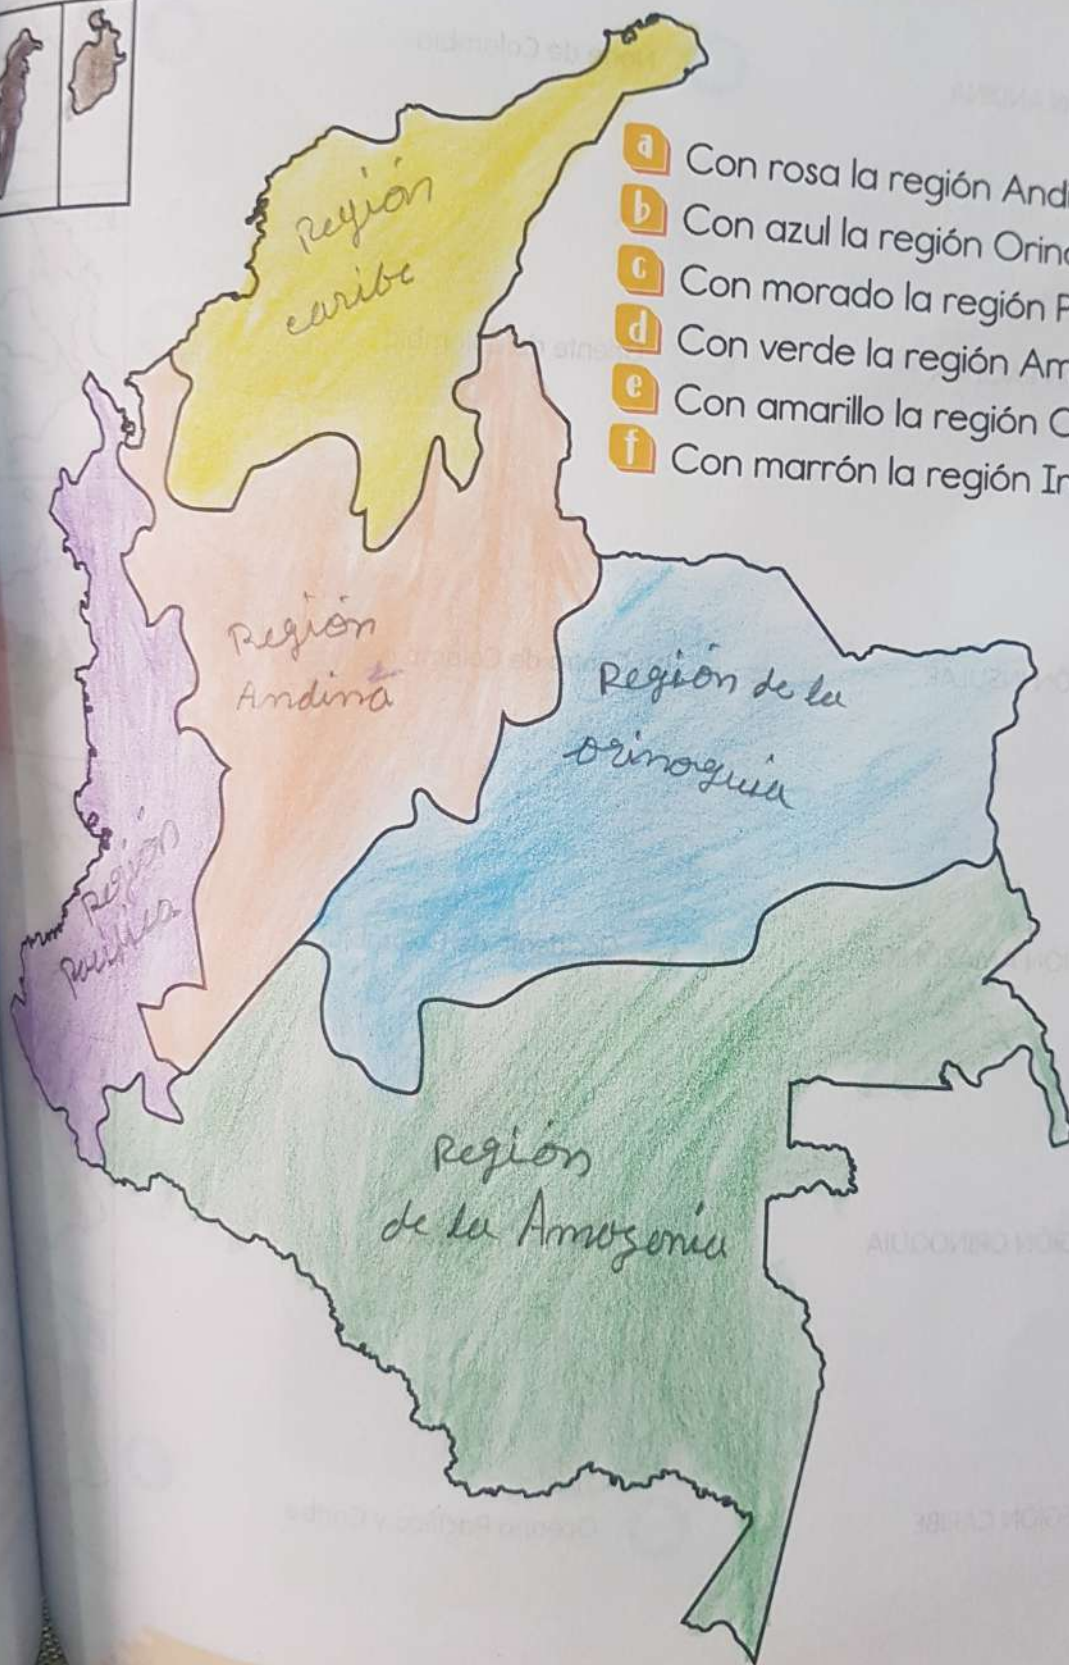 a Con rosa la región And
b Con azul la región Orino
c Con morado la región P
d Con verde la región Am
e Con amarillo la región C
f Con marrón la región In
Región
caribe
Región
Andina
Región de la
orinoquia
Región
Pacífica
Región
de la Amazonía